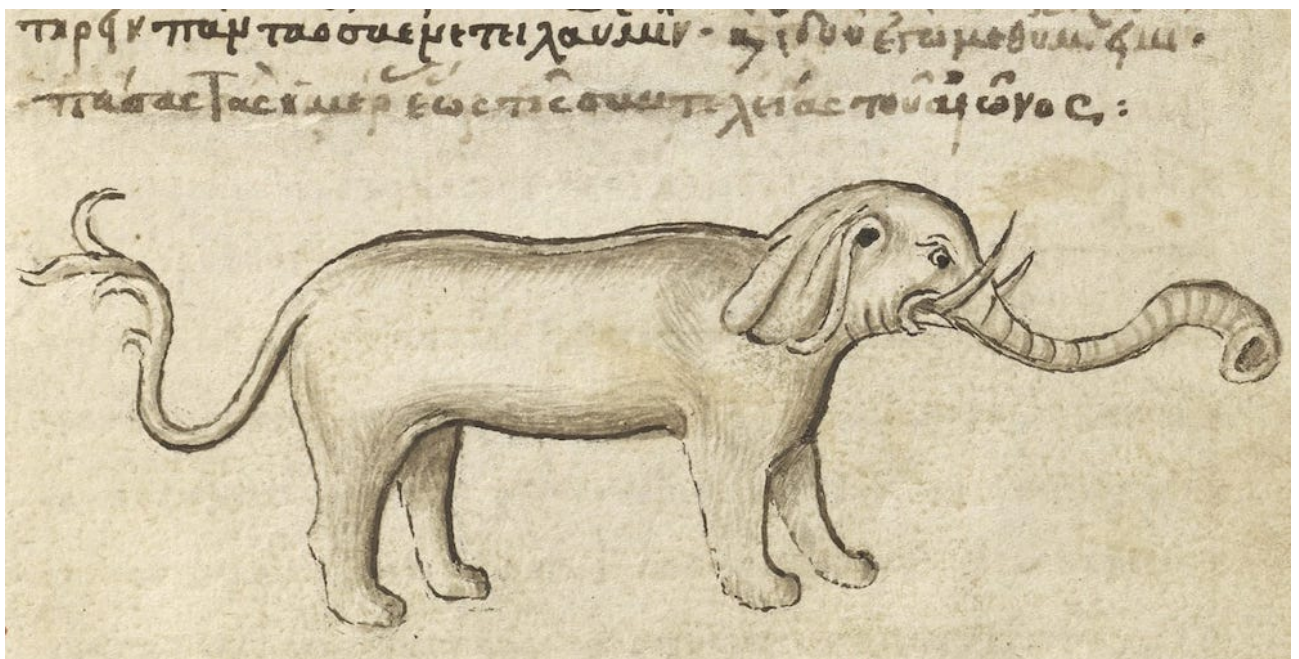 τηρεῖν πάντα ὅσα ἐνετειλάμην · καὶ ἰδοὺ ἐγὼ μεθ υμῶν εἰμι ·
πάσας τὰς ἡμέρ ἕως τῆς συντελείας τοῦ αἰῶνος :